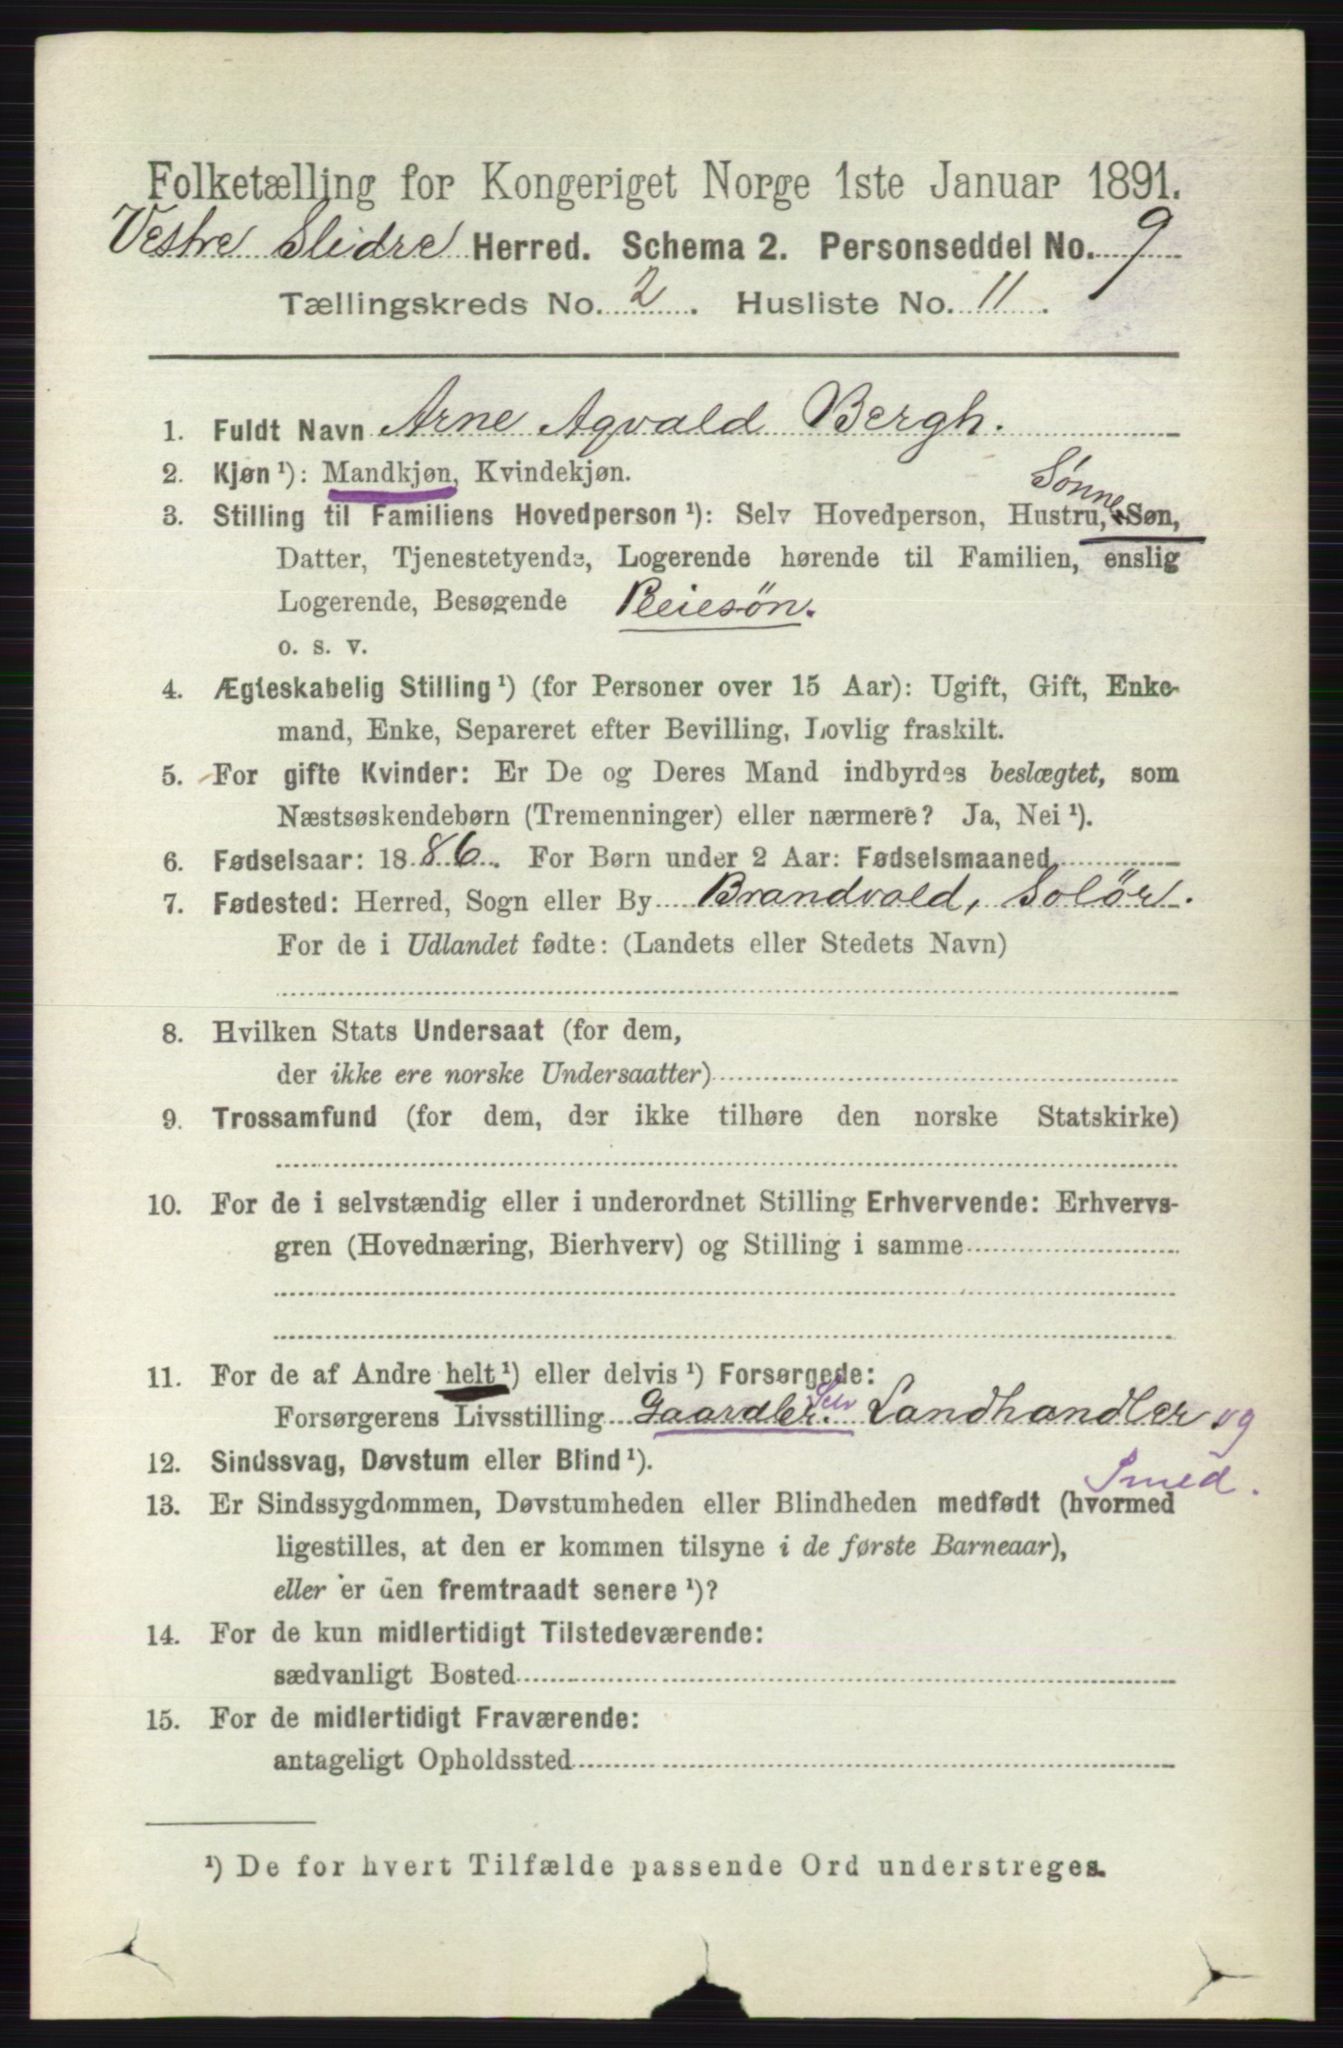 Folketælling for Kongeriget Norge 1ste Januar 1891.
Vestre Slidre Herred. Schema 2. Personseddel No. 9
Tællingskreds No. 2. Husliste No. 11.
1. Fuldt Navn Arne Aqvald Bergh.
2. Kjøn ¹): Mandkjøn, Kvindekjøn.
Sønne
3. Stilling til Familiens Hovedperson ¹): Selv Hovedperson, Hustru, Søn,
Datter, Tjenestetyende, Logerende hørende til Familien, enslig
Logerende, Besøgende Pleiesön.
o. s. v.
4. Ægteskabelig Stilling ¹) (for Personer over 15 Aar): Ugift, Gift, Enke-
mand, Enke, Separeret efter Bevilling, Lovlig fraskilt.
5. For gifte Kvinder: Er De og Deres Mand indbyrdes beslægtet, som
Næstsøskendebørn (Tremenninger) eller nærmere? Ja, Nei ¹).
6. Fødselsaar: 1886. For Børn under 2 Aar: Fødselsmaaned
7. Fødested: Herred, Sogn eller By Brandvold, Solör.
For de i Udlandet fødte: (Landets eller Stedets Navn)
8. Hvilken Stats Undersaat (for dem,
der ikke ere norske Undersaatter)
9. Trossamfund (for dem, der ikke tilhøre den norske Statskirke)
10. For de i selvstændig eller i underordnet Stilling Erhvervende: Erhvervs-
gren (Hovednæring, Bierhverv) og Stilling i samme
11. For de af Andre helt ¹) eller delvis ¹) Forsørgede:
Forsørgerens Livsstilling Gaardbr. Selv Landhandler og
Smed.
12. Sindssvag, Døvstum eller Blind ¹).
13. Er Sindssygdommen, Døvstumheden eller Blindheden medfødt (hvormed
ligestilles, at den er kommen tilsyne i de første Barneaar),
eller er den fremtraadt senere ¹)?
14. For de kun midlertidigt Tilstedeværende:
sædvanligt Bosted
15. For de midlertidigt Fraværende:
antageligt Opholdssted
¹) De for hvert Tilfælde passende Ord understreges.